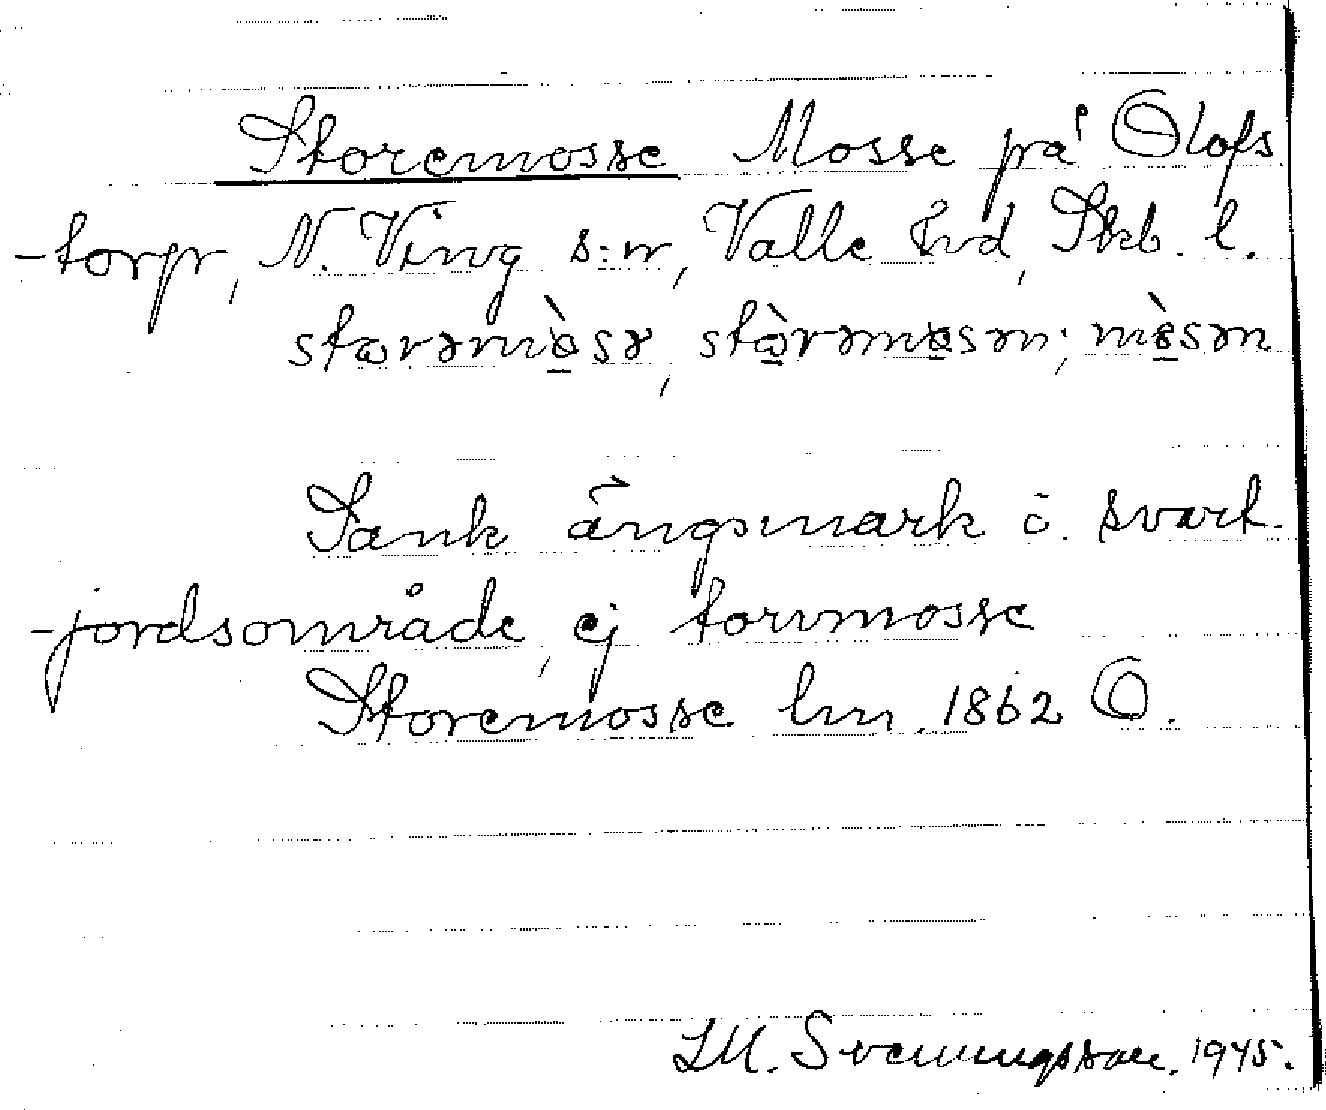 Storemosse Mosse på Olofs
-torp, N. Ving s:n, Valle hd, Skb. l.
storəmòsə, stòrəmosən; mòsən
Sank ängsmark i svart-
-jordsområde, ej torvmosse
Storemosse lm. 1862 O.
LM. Svenungsson. 1945.